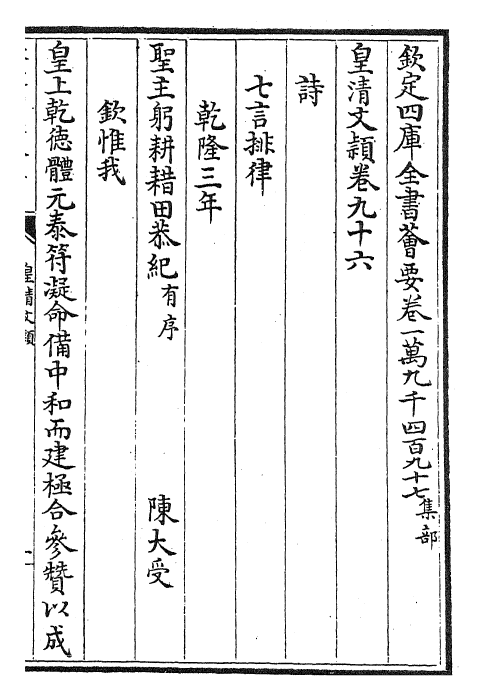 欽定四庫全書薈要卷一萬九千四百九十七集部
皇清文穎卷九十六
詩
七言排律
乾隆三年
聖主躬耕耤田恭紀有序 陳大受
欽惟我
皇上乾德體元泰符凝命備中和而建極合參贊以成
皇清文穎